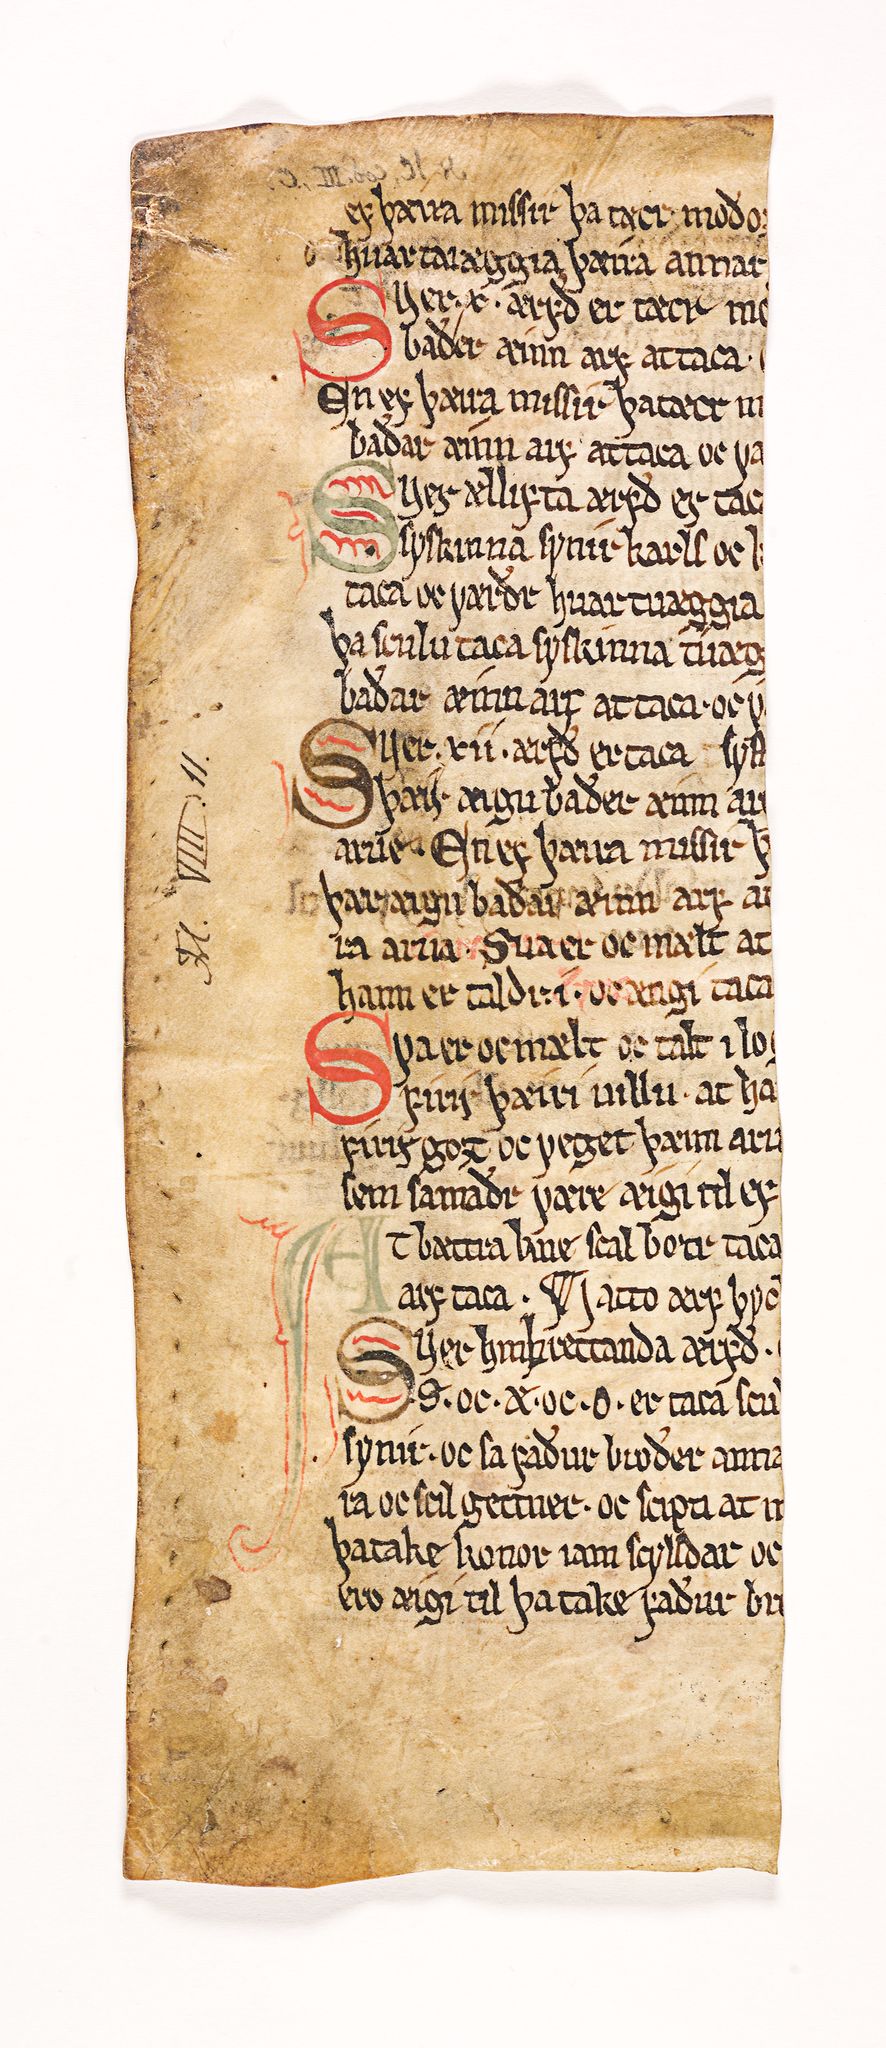 ef þæira missir þa tæcr modo
huartuæggia þæira annar
Su er .x. ærfð er tæcr mo
baðer æinn arf at taca.
En ef þæira missir þa tæcr m
baðar æinn arf at taca oc va
Su er ællifta ærfð er taca
syskinna synir karll oc k
taca oc værðr huartuæggia
þa sculu taca syskinna tuæg
baðar æinn arf at taca. oc v
Su er .xii. ærfð er taca sysk
þæir æigu baðer æinn arf
arve. En ef þæira missir þ
þar æigu baðar æinn arf at
ra arva. Sva er oc mælt at
hann er taldr .i. oc ængi taca
Sva er oc mælt oc talt i log
firir þæiri villu. at ha
firir gozt oc veget þæim arv
sem samaðr være æigi til ef
At bættra kne scal botr taca
arf taca. atto ærf
Su er ærfð.
S. oc. æ. oc. o. er taca scul
synir. oc sa faður broðer anna
ra oc scil gettner. oc scipti at m
þa take konor iam scylldar oc
ero æigi til þa take faður br